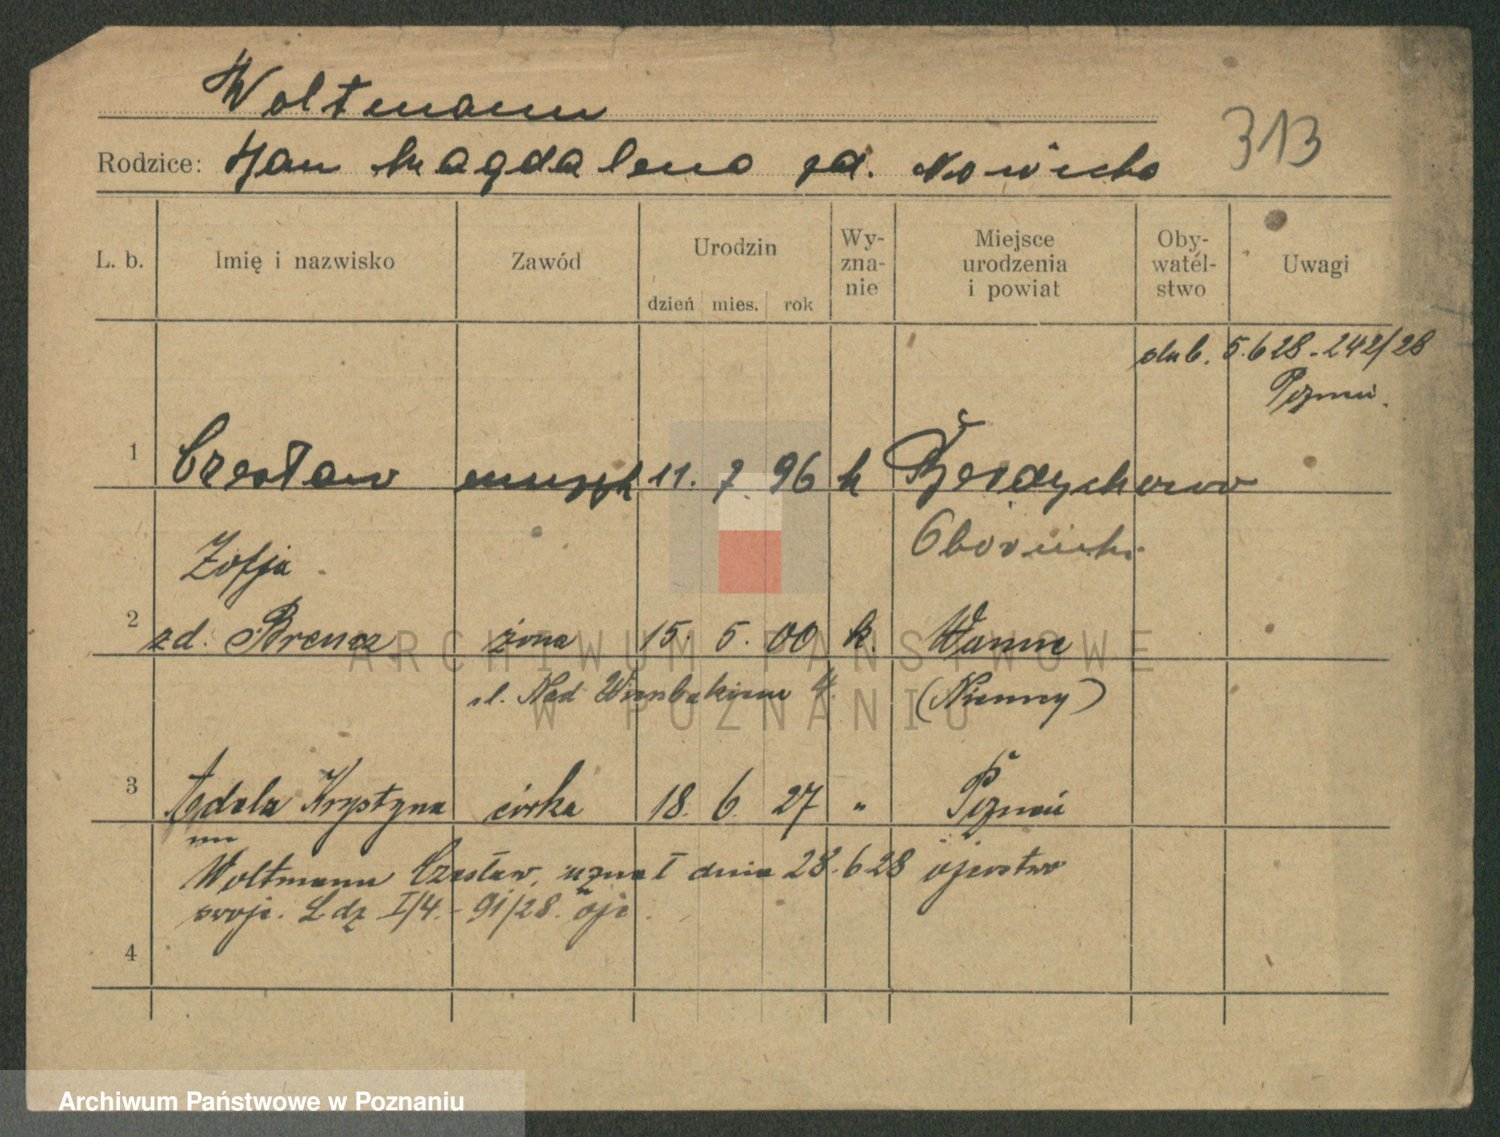 Woltmann
313
Rodzice: Jan Magdalena zd. Nowicka
L. b. Imię i nazwisko Zawód Urodzin dzień mies. rok Wy-zna-nie Miejsce urodzenia i powiat Oby-watel-stwo Uwagi
slub. 5.6 28 - 242/28
Poznań.
1 Czesław muzyk 11. 7. 96 k
Oborniki
Zofja
2 zd. Brencz żona 15. 5. 00 k. Wanne
ul. Nad Wierzbakiem 4. (Niemcy)
3 Krystyna córka 18. 6. 27 " Poznań
Woltmann Czesław, uznał dnia 28.6 28 ojcostwo
swoje. L dz I/4. - 91/28.
4
ARCHIWUM PAŃSTWOWE
W POZNANIU
Archiwum Państwowe w Poznaniu